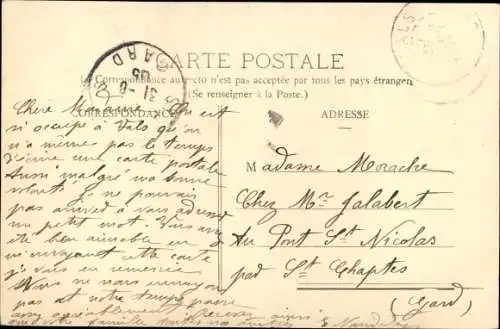 CARTE POSTALE
La Correspondance au recto n'est pas acceptée par tous les pays étrangers
(Se renseigner à la Poste.)
CORRESPONDANCE
ADRESSE
GARD
31 - 8
05
Chère Madame, On est
si occupé à Vals qu'on
n'a même pas le temps
d'écrire une carte postale
Aussi malgré ma bonne
volonté je ne pouvais
pas arriver à vous adresser
un petit mot. Vous avez
été bien aimable en
m'envoyant cette carte
je vous en remercie
Nous ne nous ennuyons
pas et notre temps passe
assez agréablement. Recevez ainsi
que votre famille toutes nos amitiés
Madame Morache
Chez Mr. Jalabert
Au Pont St. Nicolas
par St. Chaptes
(Gard)